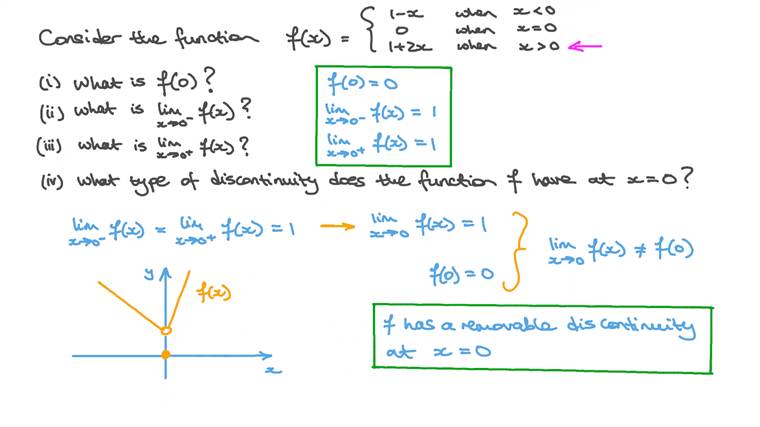 Consider the function f(x) = { 1-x when x<0
0 when x=0
1+2x when x>0
(i) What is f(0)? f(0) = 0
(ii) what is lim x→0⁻ f(x)? lim x→0⁻ f(x) = 1
(iii) what is lim x→0⁺ f(x)? lim x→0⁺ f(x) = 1
(iv) What type of discontinuity does the function f have at x=0?
lim x→0⁻ f(x) = lim x→0⁺ f(x) = 1 → lim x→0 f(x) = 1
f(0) = 0
} lim x→0 f(x) ≠ f(0)
y
f(x)
x
f has a removable discontinuity
at x = 0